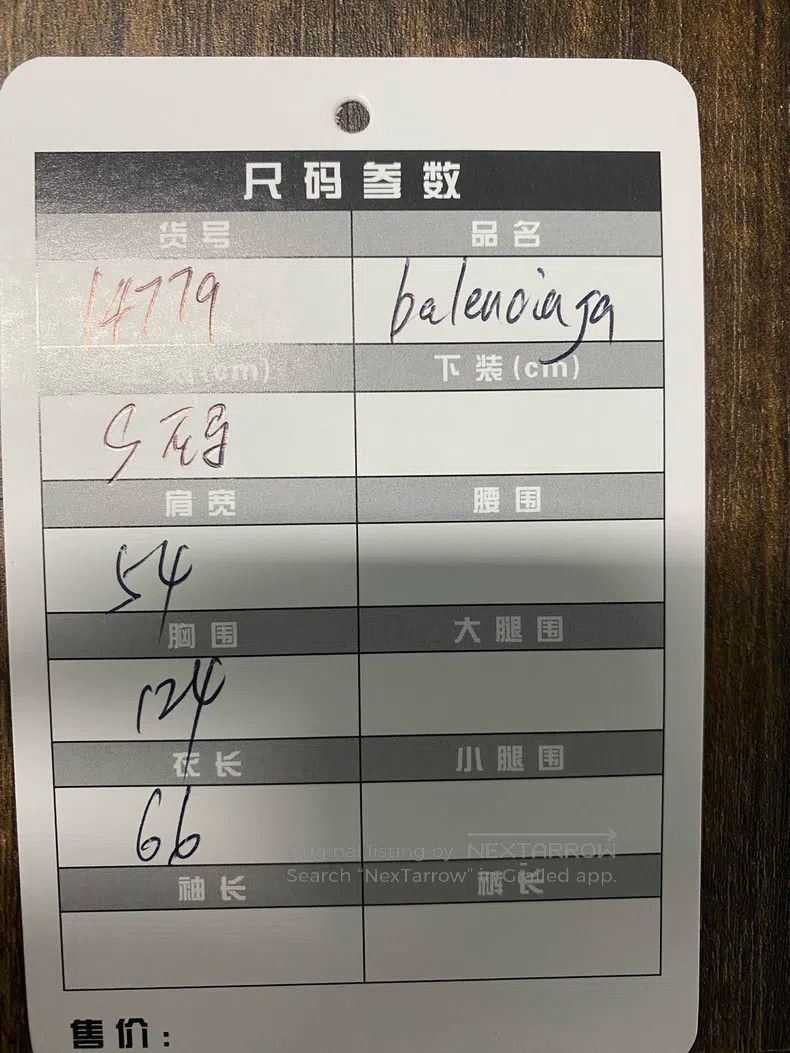 尺码参数
货号 品名
14779 balenciaga
(cm) 下装(cm)
S 码
肩宽 腰围
54
胸围 大腿围
124
衣长 小腿围
66
Original listing by NEXTARROW
Search "NexTarrow" in Grailed app.
袖长 裤长
售价：